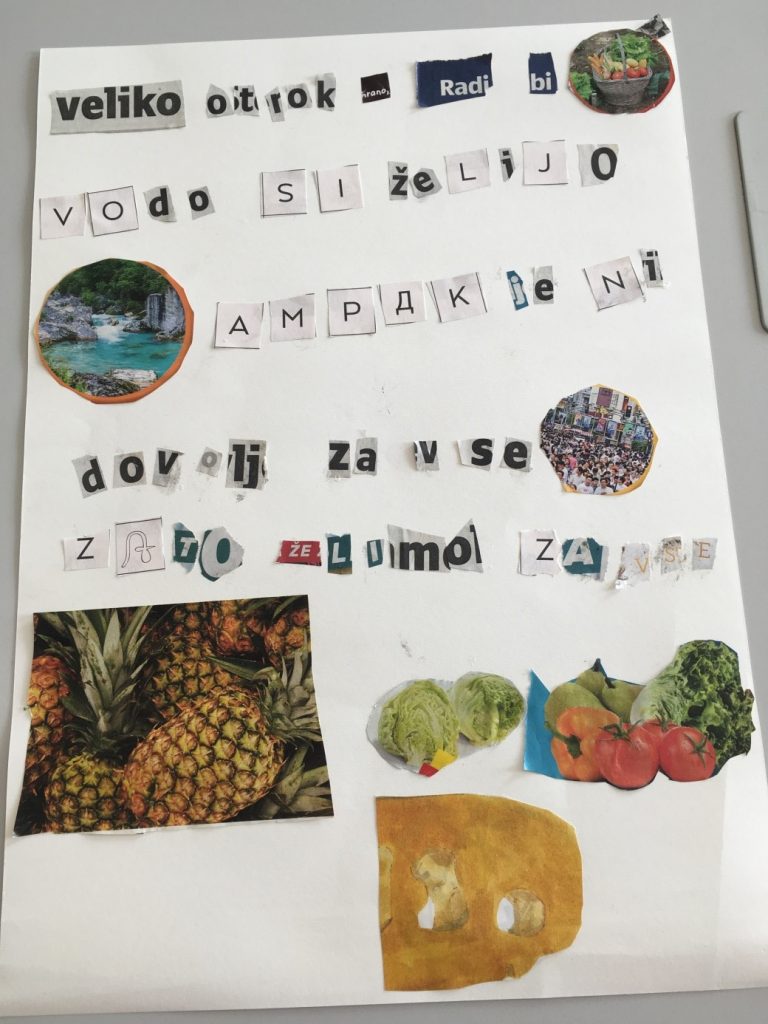 veliko otrok hrano Radi bi
VODO SI žeLiJO
AMPAK je Ni
dovolj za vse
ZATO ŽELIMO ZA VSE